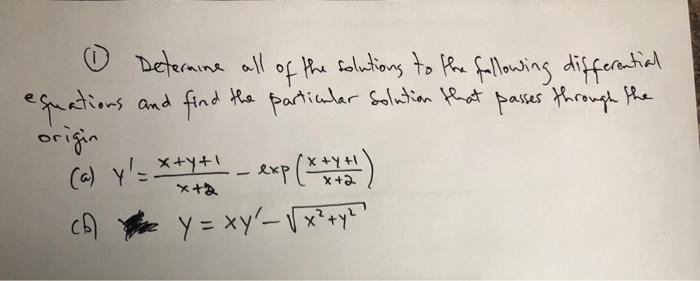 ① Determine all of the solutions to the following differential
equations and find the particular solution that passes through the
origin
(a) y' = x+y+1/x+2 - exp(x+y+1/x+2)
(b) y = xy' - √x²+y²